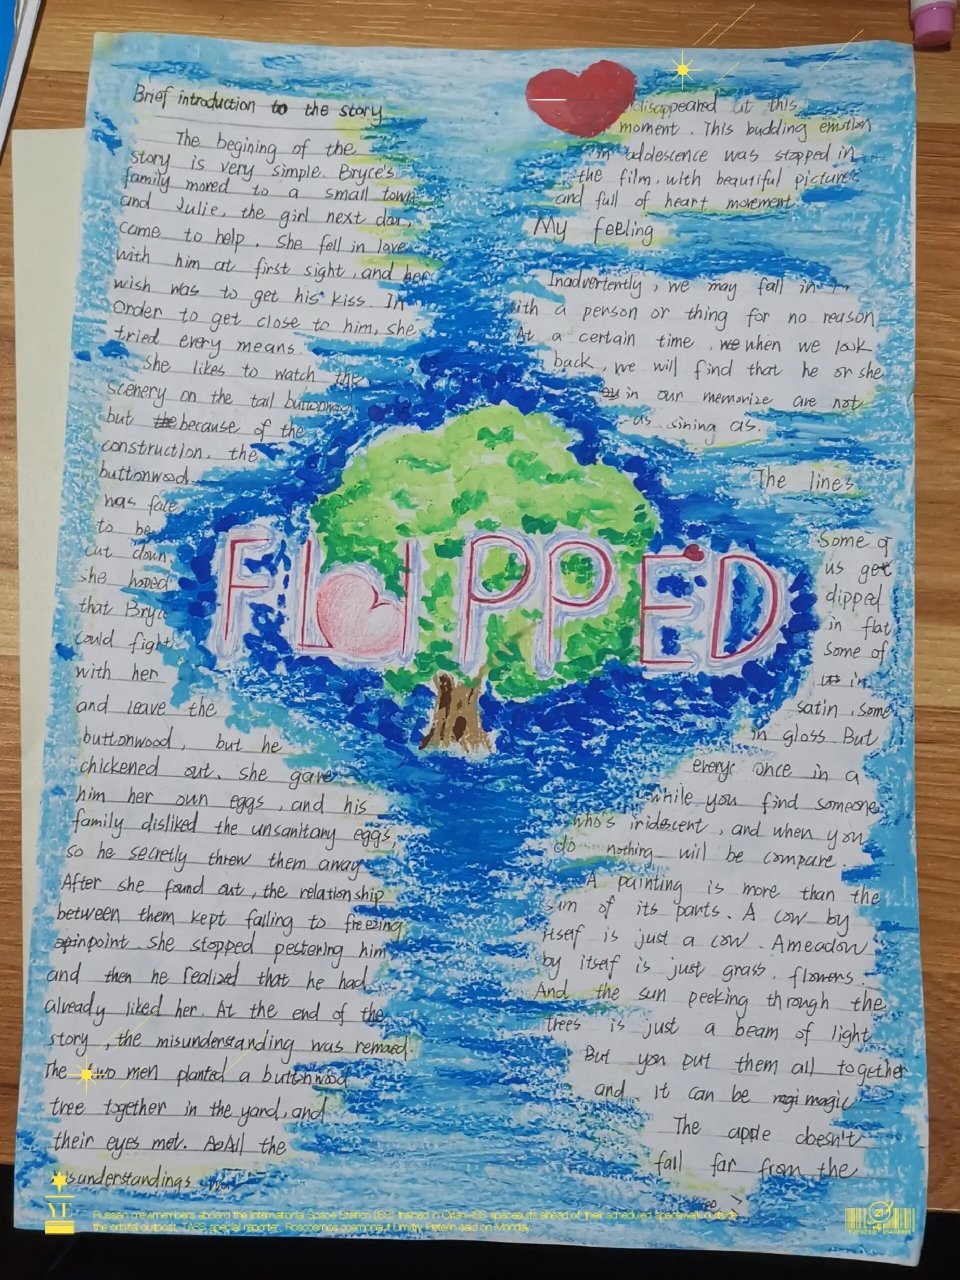 Brief introduction to the story
The begining of the
story is very simple. Bryce's
family moved to a small town
and Julie, the girl next door,
came to help. She fell in love
with him at first sight, and her
wish was to get his kiss. In
order to get close to him, she
tried every means.
She likes to watch the
scenery on the tall buttonwood
but the because of the
construction, the
buttonwood
was face
to be
cut down,
she hoped
that Bryce
could fight
with her
and leave the
buttonwood, but he
chickened out. She gave
him her own eggs, and his
family disliked the unsanitary eggs,
so he secretly threw them away
After she found out, the relationship
between them kept falling to freezing
point. She stopped pestering him
and then he realized that he had
already liked her. At the end of the
story, the misunderstanding was
The two men planted a buttonwood
tree together in the yard, and
their eyes met. All the
misunderstandings
disappeared at this
moment. This budding emotion
in addescence was stopped in
the film, with beautiful pictures
and full of heart movement.
My feeling
Inadvertently, we may fall in
with a person or thing for no reason
At a certain time, we when we look
back, we will find that he or she
in our memorize are not
as sining as.
The lines
Some of
us get
dipped
in flat
some of
us in
satin, some
in gloss. But
every once in a
while you find someone
who's iridescent, and when you
do nothing will be compare.
A painting is more than the
sum of its parts. A cow by
itself is just a cow. Ameadow
by itself is just grass, flowers.
And the sun peeking through the
trees is just a beam of light
But you put them all together
and it can be magic
The apple doesn't
fall far from the
FLIPPED
YE
Russian crewmembers aboard the International Space Station (ISS) trained in Orlan-ISS spacesuits ahead of their scheduled spacewalk outside
the orbital outpost, TASS special reporter, Roscosmos cosmonaut Dmitry Petelin said on Monday.